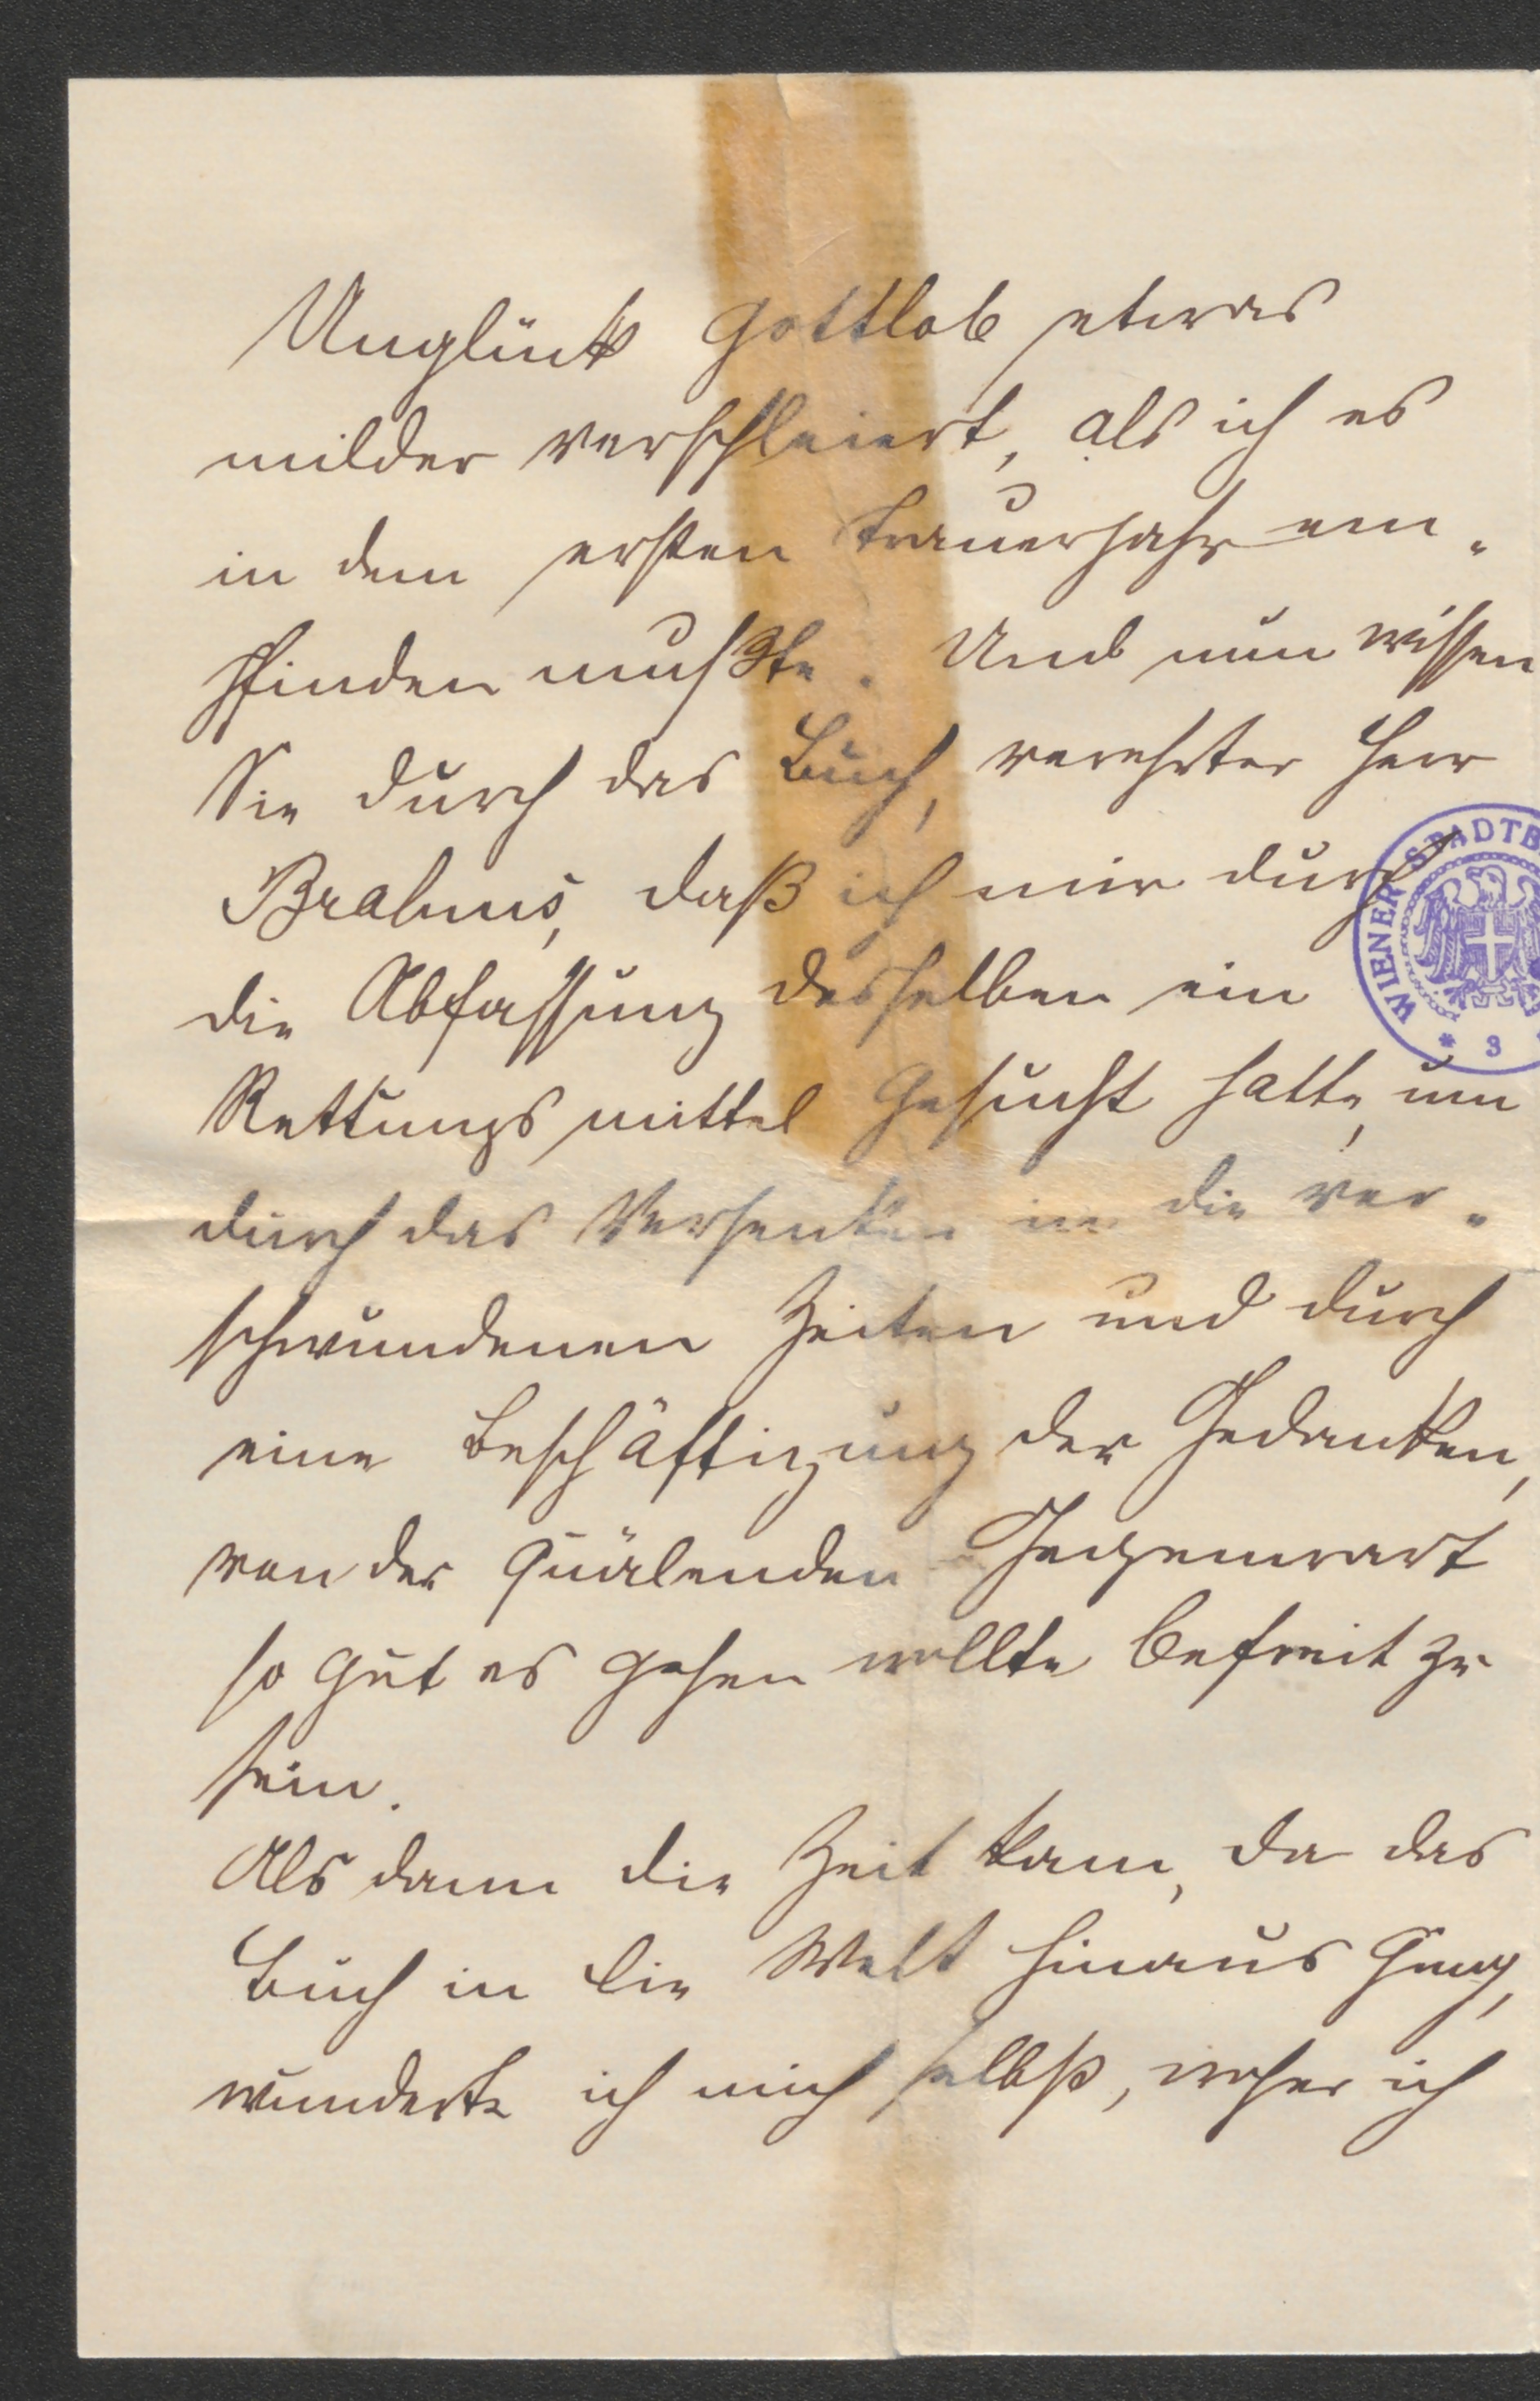 Unglück Gottlob etwas
milder verschleiert, als ich es
in dem ersten Trauerjahr em-
pfinden mußte. Und nun wissen
Sie durch das Buch, verehrter Herr
Brahms, daß ich mir durch
die Abfassung desselben ein
Rettungsmittel gesucht hatte, um
durch das Versenken in die ver-
schwundenen Zeiten und durch
eine Beschäftigung der Gedanken,
von der quälenden Gegenwart
so gut es gehen wollte befreit zu
sein.
Als dann die Zeit kam, da das
Buch in die Welt hinaus ging,
wunderte ich mich selbst, woher ich
WIENER STADTB
* 3